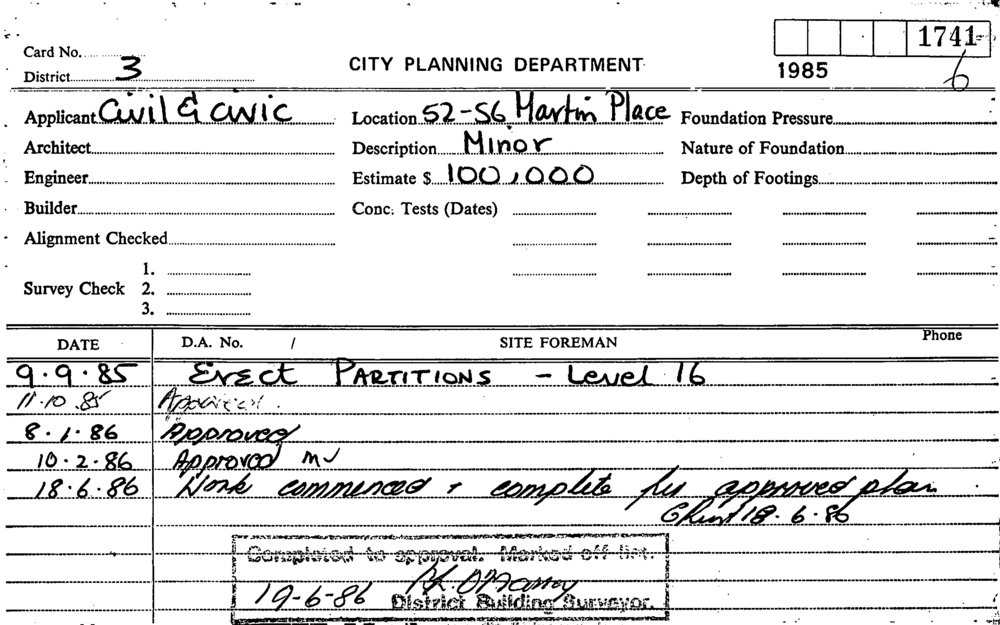 Card No.
1741
District 3
CITY PLANNING DEPARTMENT
1985
6
Applicant Civil & Civic
Location 52-56 Martin Place
Foundation Pressure
Architect
Description Minor
Nature of Foundation
Engineer
Estimate $ 100,000
Depth of Footings
Builder
Conc. Tests (Dates)
Alignment Checked
1.
Survey Check 2.
3.
DATE D.A. No. / SITE FOREMAN Phone
9.9.85 Erect PARTITIONS - Level 16
11.10.85 Approved.
8.1.86 Approved
10.2.86 Approved MJ
18.6.86 Work commenced + complete per approved plan
18.6.86
Completed to approval. Marked off list.
19-6-86
District Building Surveyor.